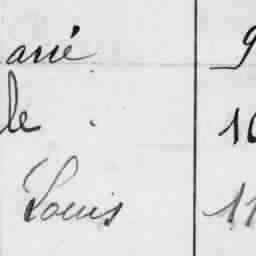 arié 9
le 10
Louis 11